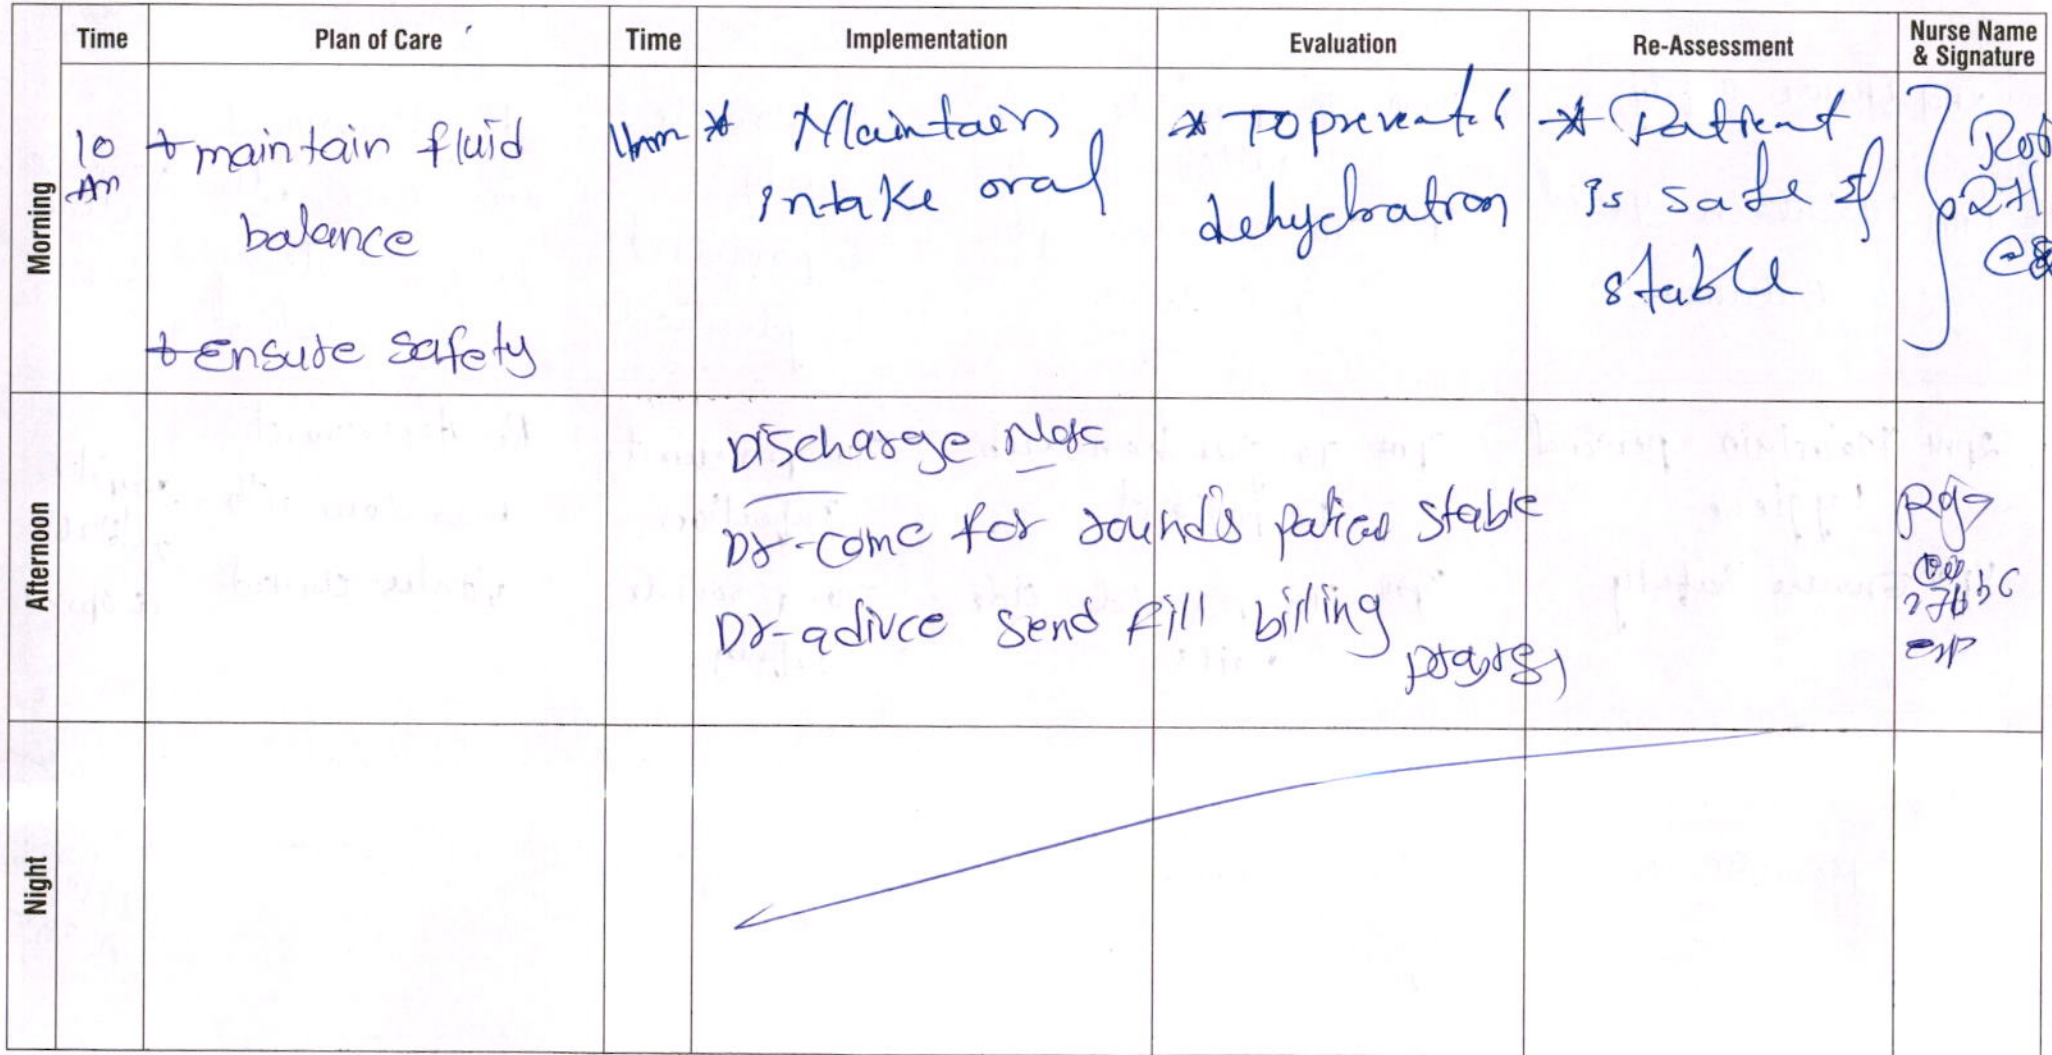 Time Plan of Care Time Implementation Evaluation Re-Assessment Nurse Name & Signature
Morning
10 Am
+ maintain fluid
balance
+ Ensure safety
11am
* Maintain
intake oral
* To prevent
dehydration
* Patient
is safe &
stable
Afternoon
Discharge
Dr-come for rounds stable
Dr-adivce send fill billing
Night